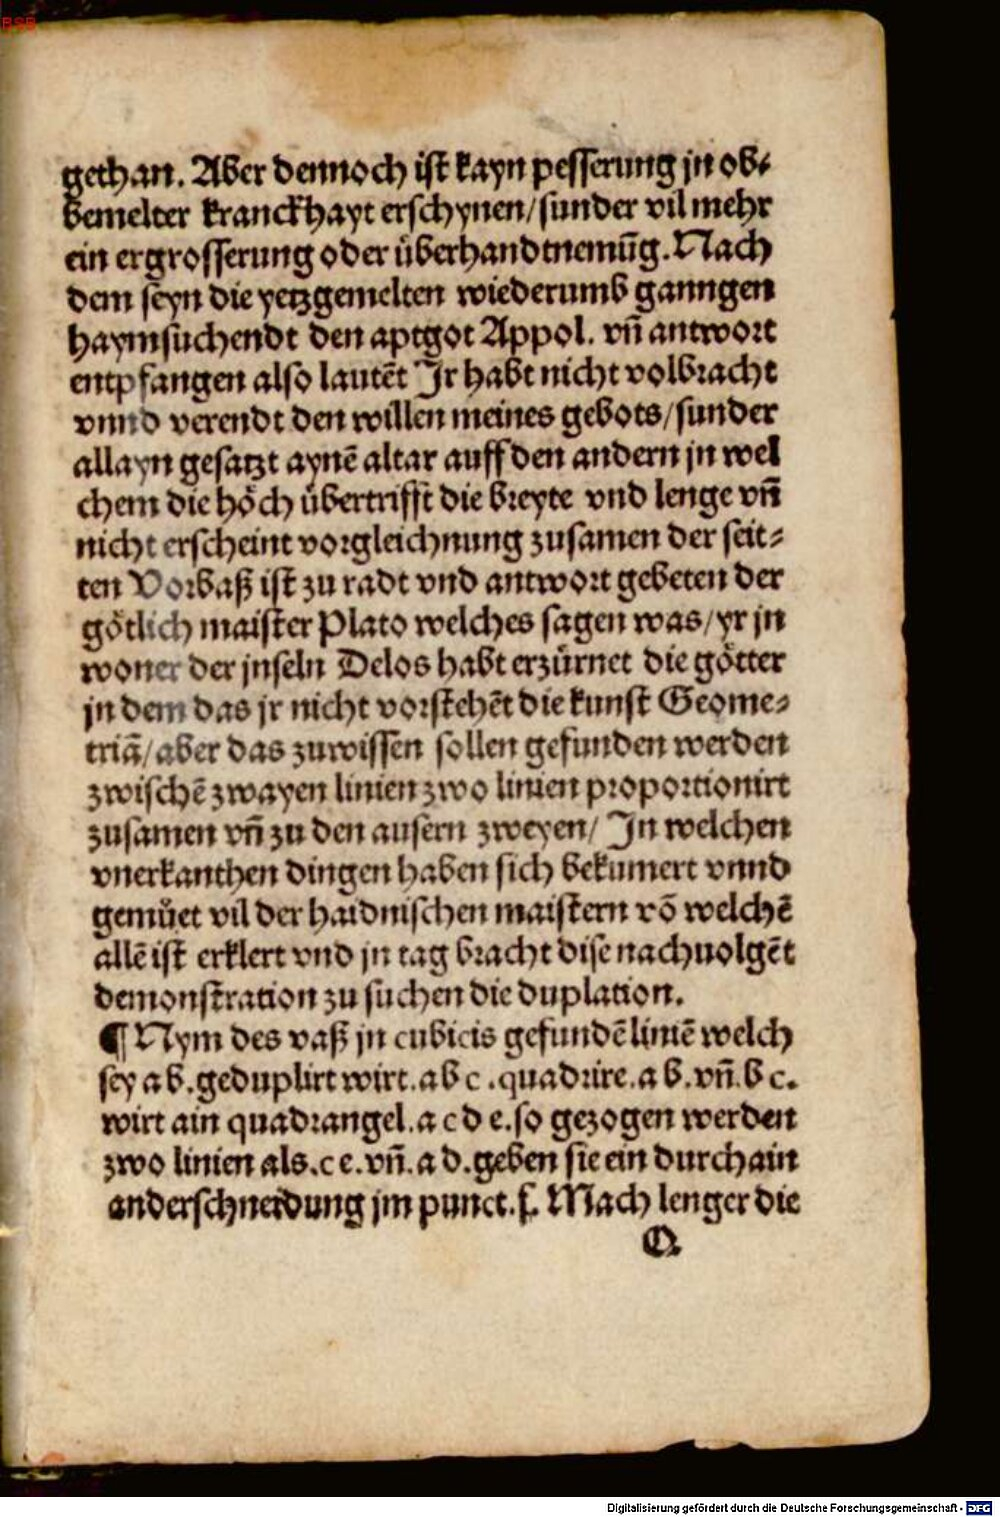 BSB
gethan. Aber dennoch ist kayn pesserung jn ob⸗
bemelter kranckhayt erschynen/sunder vil mehr
ein ergrosserung oder überhandtnemūg. Nach
dem seyn die yetzgemelten wiederumb ganngen
haymsuchendt den aptgot Appol. vn̄ antwort
entpfangen also lautēt Jr habt nicht volbracht
vnnd verendt den willen meines gebots/sunder
allayn gesatzt aynē altar auff den andern jn wel
chem die höch übertrifft die breyte vnd lenge vn̄
nicht erscheint vorgleichnung zusamen der seit⸗
ten Vorbaß ist zu radt vnd antwort gebeten der
götlich maister Plato welches sagen was/yr jn
woner der jnseln Delos habt erzürnet die götter
jn dem das jr nicht vorstehēt die kunst Geome⸗
triā/aber das zuwissen sollen gefunden werden
zwischē zwayen linien zwo linien proportionirt
zusamen vn̄ zu den ausern zweyen/ Jn welchen
vnerkanthen dingen haben sich bekumert vnnd
gemüet vil der haidnischen maistern vō welchē
allē ist erklert vnd jn tag bracht dise nachuolgēt
demonstration zu suchen die duplation.
¶ Nym des vaß jn cubicis gefundē liniē welch
sey a b. geduplirt wirt. a b c. quadrire. a b. vn̄. b c.
wirt ain quadrangel. a c d e. so gezogen werden
zwo linien als. c e. vn̄. a d. geben sie ein durchain
anderschneidung jm punct. f. Mach lenger die
O
Digitalisierung gefördert durch die Deutsche Forschungsgemeinschaft - DFG